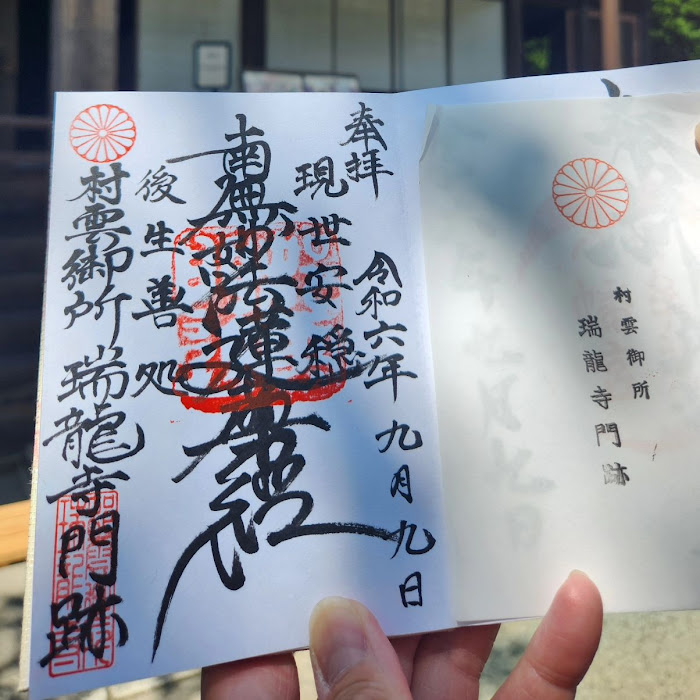 奉拝
令和六年九月九日
現世安穏
南無妙法蓮華経
後生善処
村雲御所 瑞龍寺門跡
村雲御所
瑞龍寺門跡